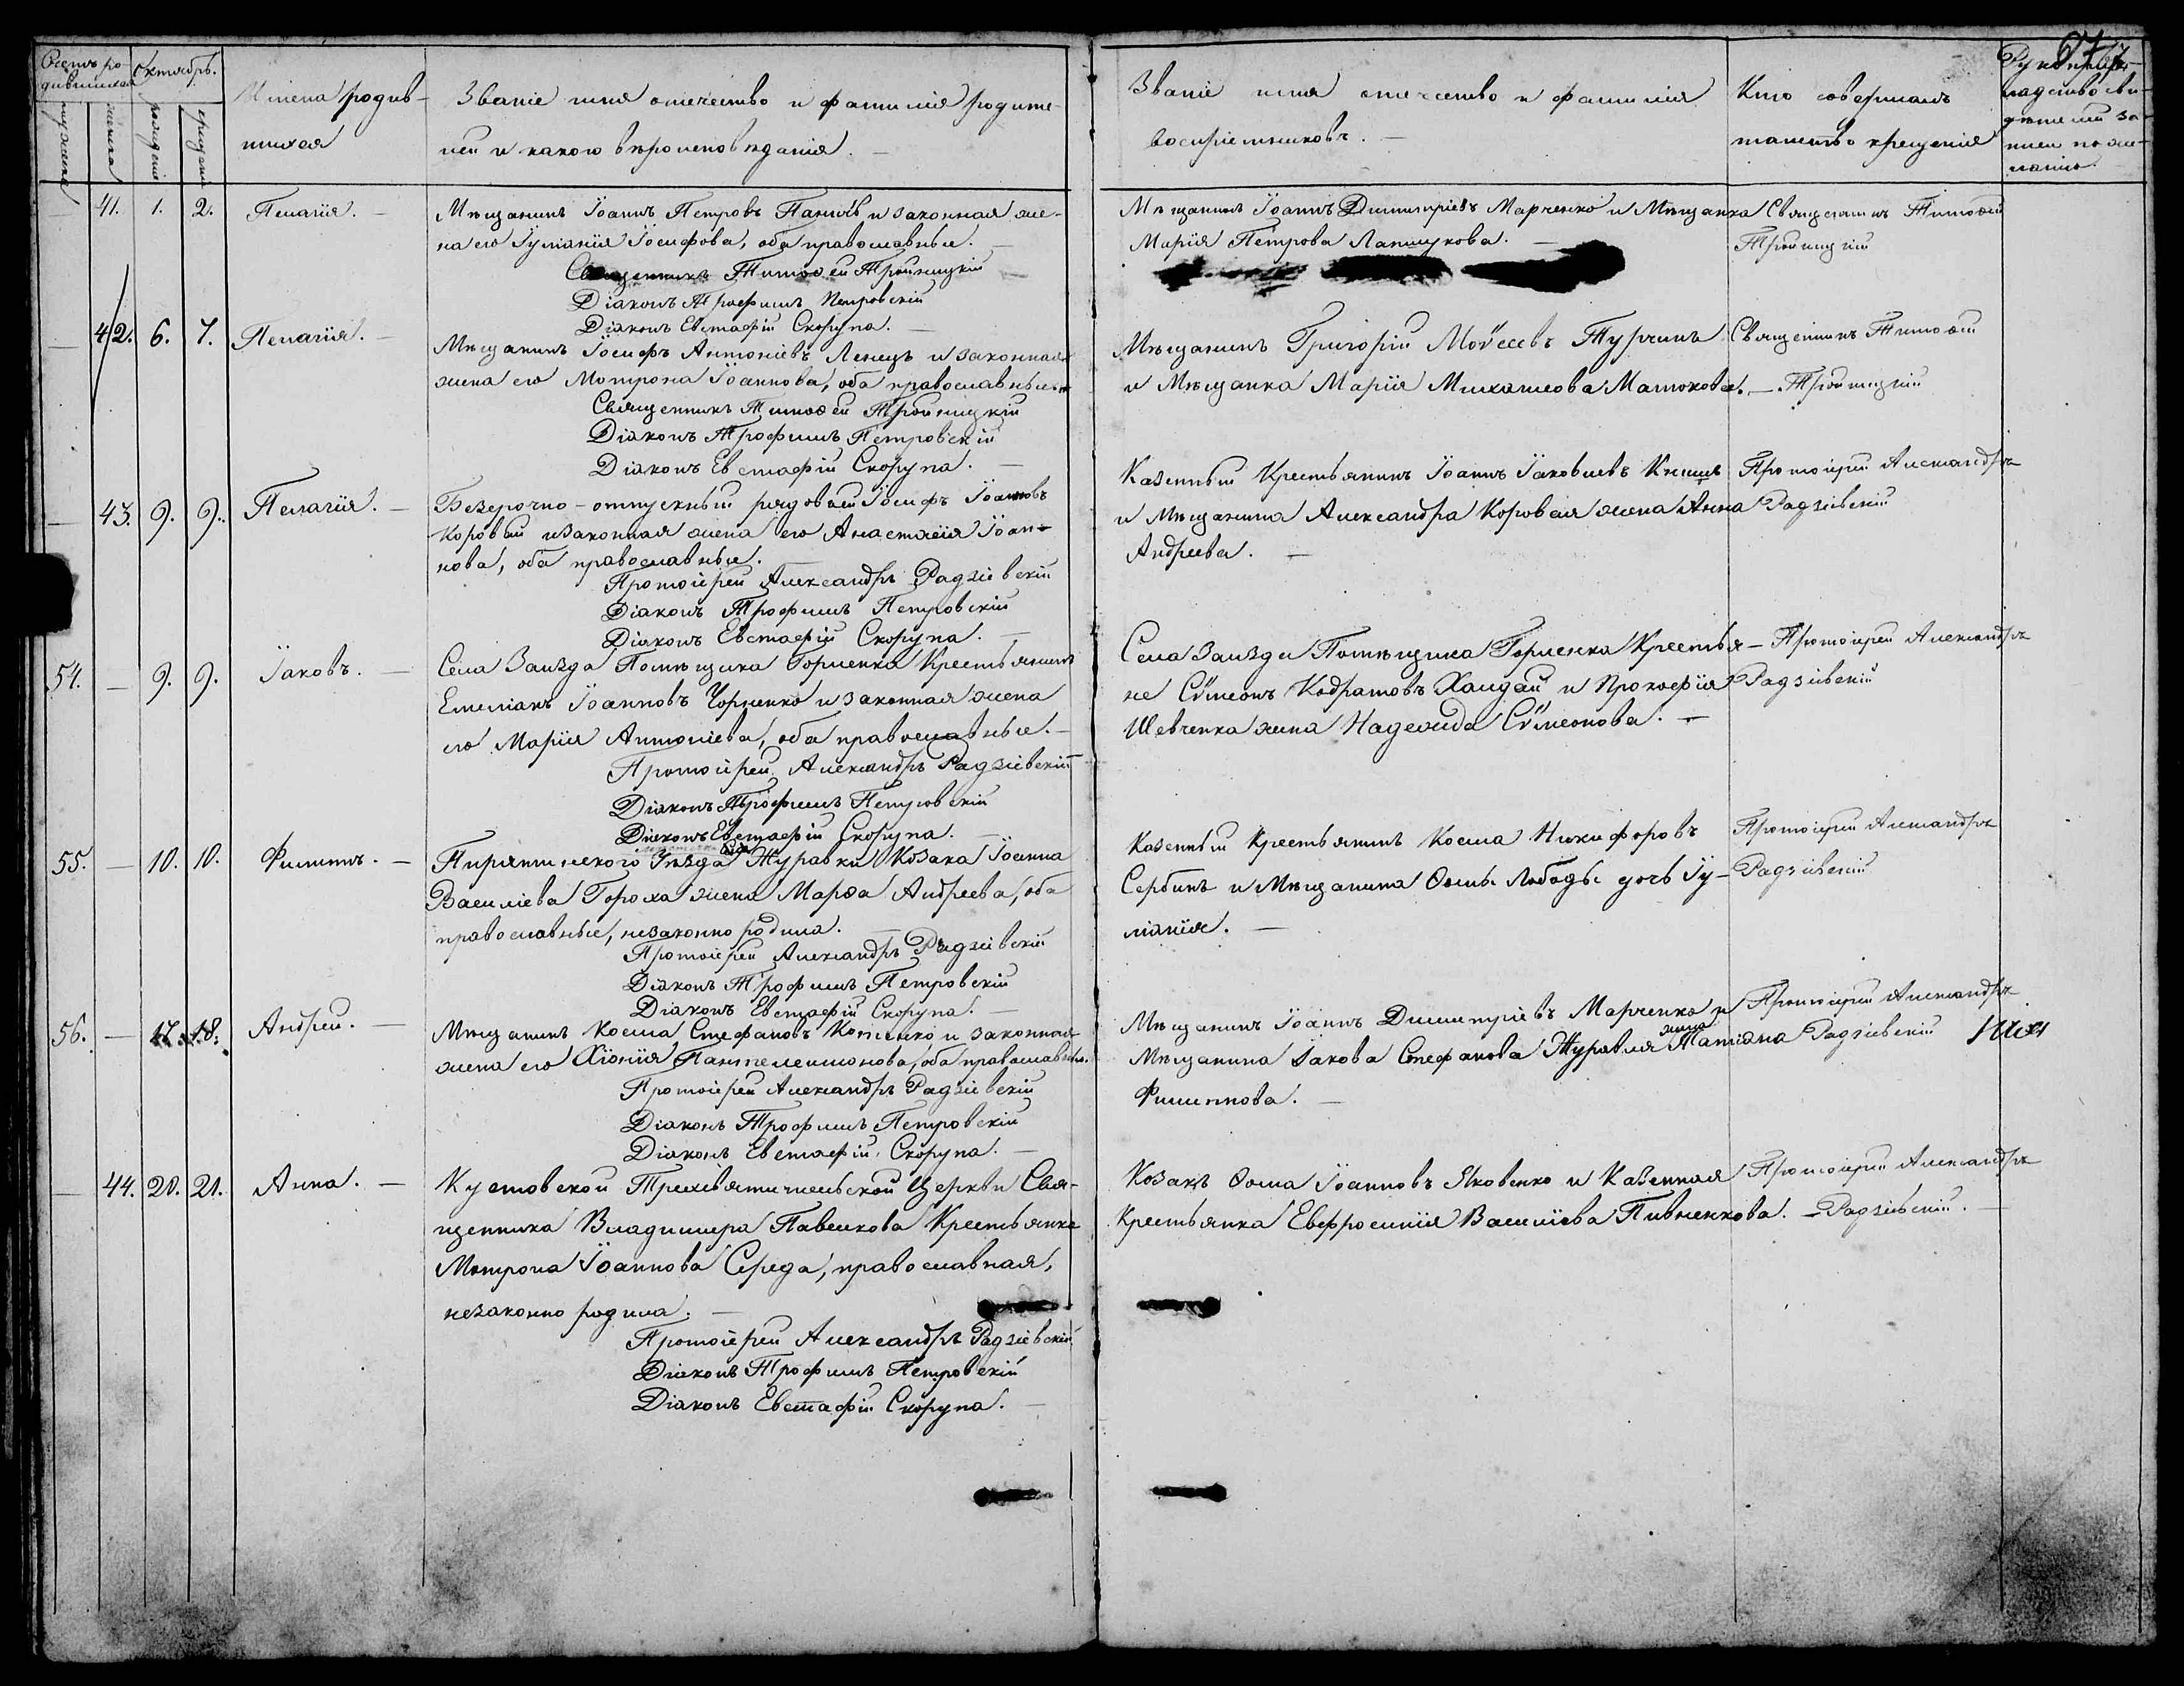 67
Счетъ ро-
дившихся
мужеска
женска
Октябрь.
рожденія
крещенія
Имена родив-
шихся
Званіе имя отечество и фамилія родите-
лей и какого вѣроисповѣданія. —
Званіе имя отечество и фамилія
воспріемниковъ. —
Кто совершалъ
таинство крещенія
Рукоприк-
ладство сви-
дѣтелей за-
писи по же-
ланію
41. 1. 2. Пелагія. —
Мѣщанинъ Іоаннъ Петровъ и законная же-
на его Іуліанія Іосифова, оба православные. —
Священникъ Тимоѳей Тройницкій —
Діаконъ Трофимъ Петровскій
Діаконъ Евстафій Скорупа. —
Мѣщанинъ Іоаннъ Димитріевъ Марченко и Мѣщанка
Марія Петрова Лапшукова. —
Священникъ Тимоѳей
Тройницкій
— 42. 6. 7. Пелагія. —
Мѣщанинъ Іосифъ Антоніевъ Ленецъ и законная
жена его Мотрона Іоаннова, оба православные. —
Священникъ Тимоѳей Тройницкій
Діаконъ Трофимъ Петровскій
Діаконъ Евстафій Скорупа. —
Мѣщанинъ Григорій Моѵсеевъ Турчинъ
и Мѣщанка Марія Михаилова Матюкова. —
Священникъ Тимоѳей
Тройницкій
— 43. 9. 9. Пелагія. —
Безсрочно-отпускный рядовый Іосифъ Іоанновъ
Коровай и законная жена его Анастасія Іоан-
нова, оба православные.
Протоіерей Александръ Радзіевскій
Діаконъ Трофимъ Петровскій
Діаконъ Евстафій Скорупа. —
Казенный Крестьянинъ Іоаннъ Іаковлевъ Книшъ
и Мѣщанина Александра Коровая жена Анна
Андреева. —
Протоіерей Александръ
Радзіевскій
54. — 9. 9. Іаковъ. —
Села Заѣзда Помѣщика Горленка Крестьянинъ
Емеліанъ Іоанновъ Чорненко и законная жена
его Марія Антоніева, оба православные. —
Протоіерей Александръ Радзіевскій
Діаконъ Трофимъ Петровскій
Діаконъ Евстафій Скорупа. —
Села Заѣзда Помѣщика Горленка Крестья-
не Сѵмеонъ Кодратовъ Халдай и Прокофія
Шевченка жена Надежда Сѵмеонова. —
Протоіерей Александръ
Радзіевскій
55. — 10. 10. Филиппъ. —
Пирятинского Уѣзда Журавки Козака Іоанна
Василіева Гороха жена Марѳа Андреева, оба
православные, незаконно родила. —
Протоіерей Александръ Радзіевскій
Діаконъ Трофимъ Петровскій
Діаконъ Евстафій Скорупа. —
Казенный Крестьянинъ Косма Никифоровъ
Сербинъ и Мѣщанина Ѳомы Лободы дочь Іу-
ліанія. —
Протоіерей Александръ
Радзіевскій
56. — 17. 18. Андрей. —
Мѣщанинъ Косма Стефановъ Котенко и законная
жена его Хіонія Пантелеимонова, оба православные.
Протоіерей Александръ Радзіевскій
Діаконъ Трофимъ Петровскій
Діаконъ Евстафій Скорупа. —
Мѣщанинъ Іоаннъ Димитріевъ Марченко и
Мѣщанина Іакова Стефанова Журавля жена Татіана
Филиппова. —
Протоіерей Александръ
Радзіевскій
— 44. 20. 21. Анна. —
Кустовской Трехсвятительской Церкви Свя-
щенника Владимира Павелкова Крестьянка
Мотрона Іоаннова Середа, православная,
незаконно родила. —
Протоіерей Александръ Радзіевскій
Діаконъ Трофимъ Петровскій
Діаконъ Евстафій Скорупа. —
Козакъ Ѳома Іоанновъ Яковенко и Казенная
Крестьянка Евфросинія Василіева Пивненкова. —
Протоіерей Александръ
Радзіевскій. —